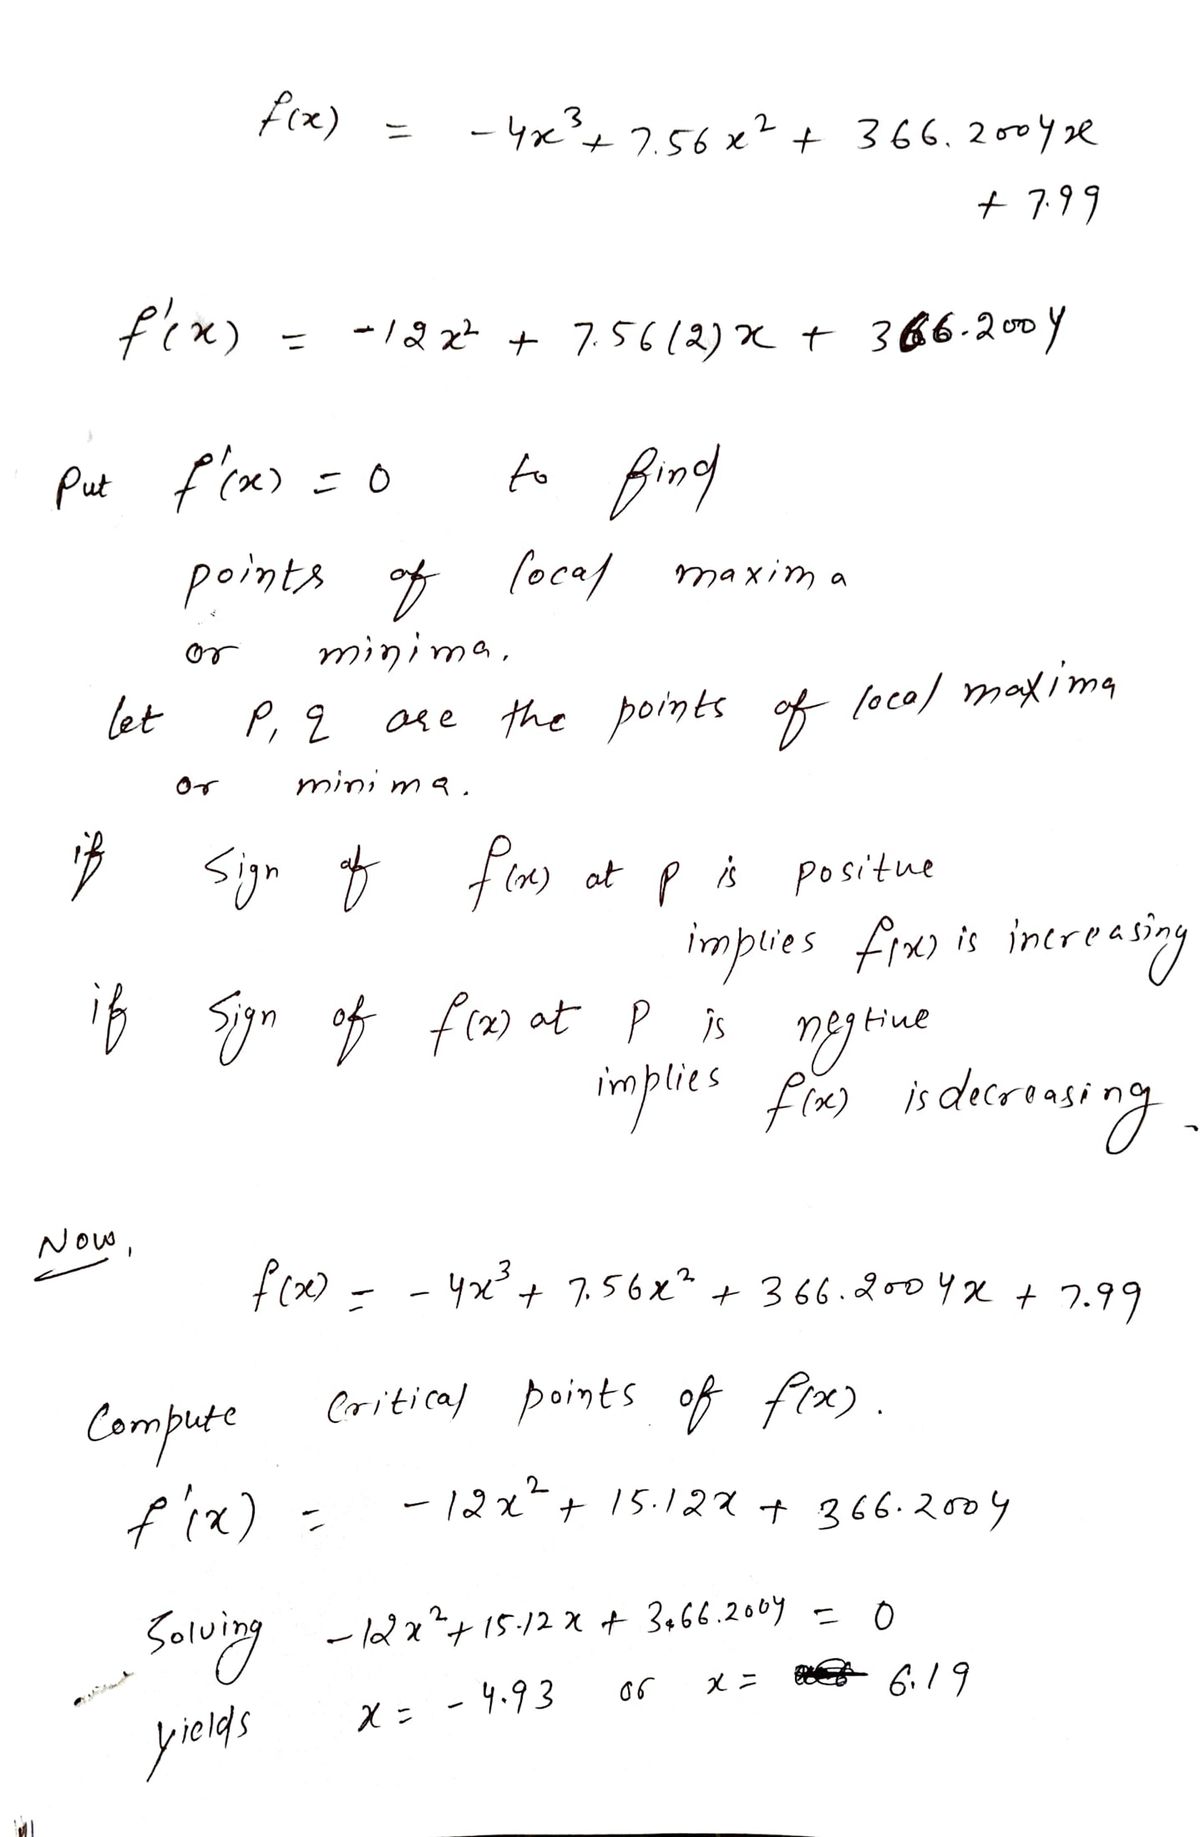 f(x) = -4x³ + 7.56x² + 366.2004x
+ 7.99
f'(x) = -12x² + 7.56(2)x + 366.2004
Put f'(x) = 0 to find
points of local maxima
or minima.
let P, q are the points of local maxima
or minima.
if sign of f(x) at p is positive
implies f(x) is increasing
if sign of f(x) at P is negtive
implies f(x) is decreasing.
Now,
f(x) = -4x³ + 7.56x² + 366.2004x + 7.99
Compute Critical points of f(x).
f'(x) = -12x² + 15.12x + 366.2004
Solving -12x² + 15.12x + 366.2004 = 0
yields x = -4.93 or x = 6.19